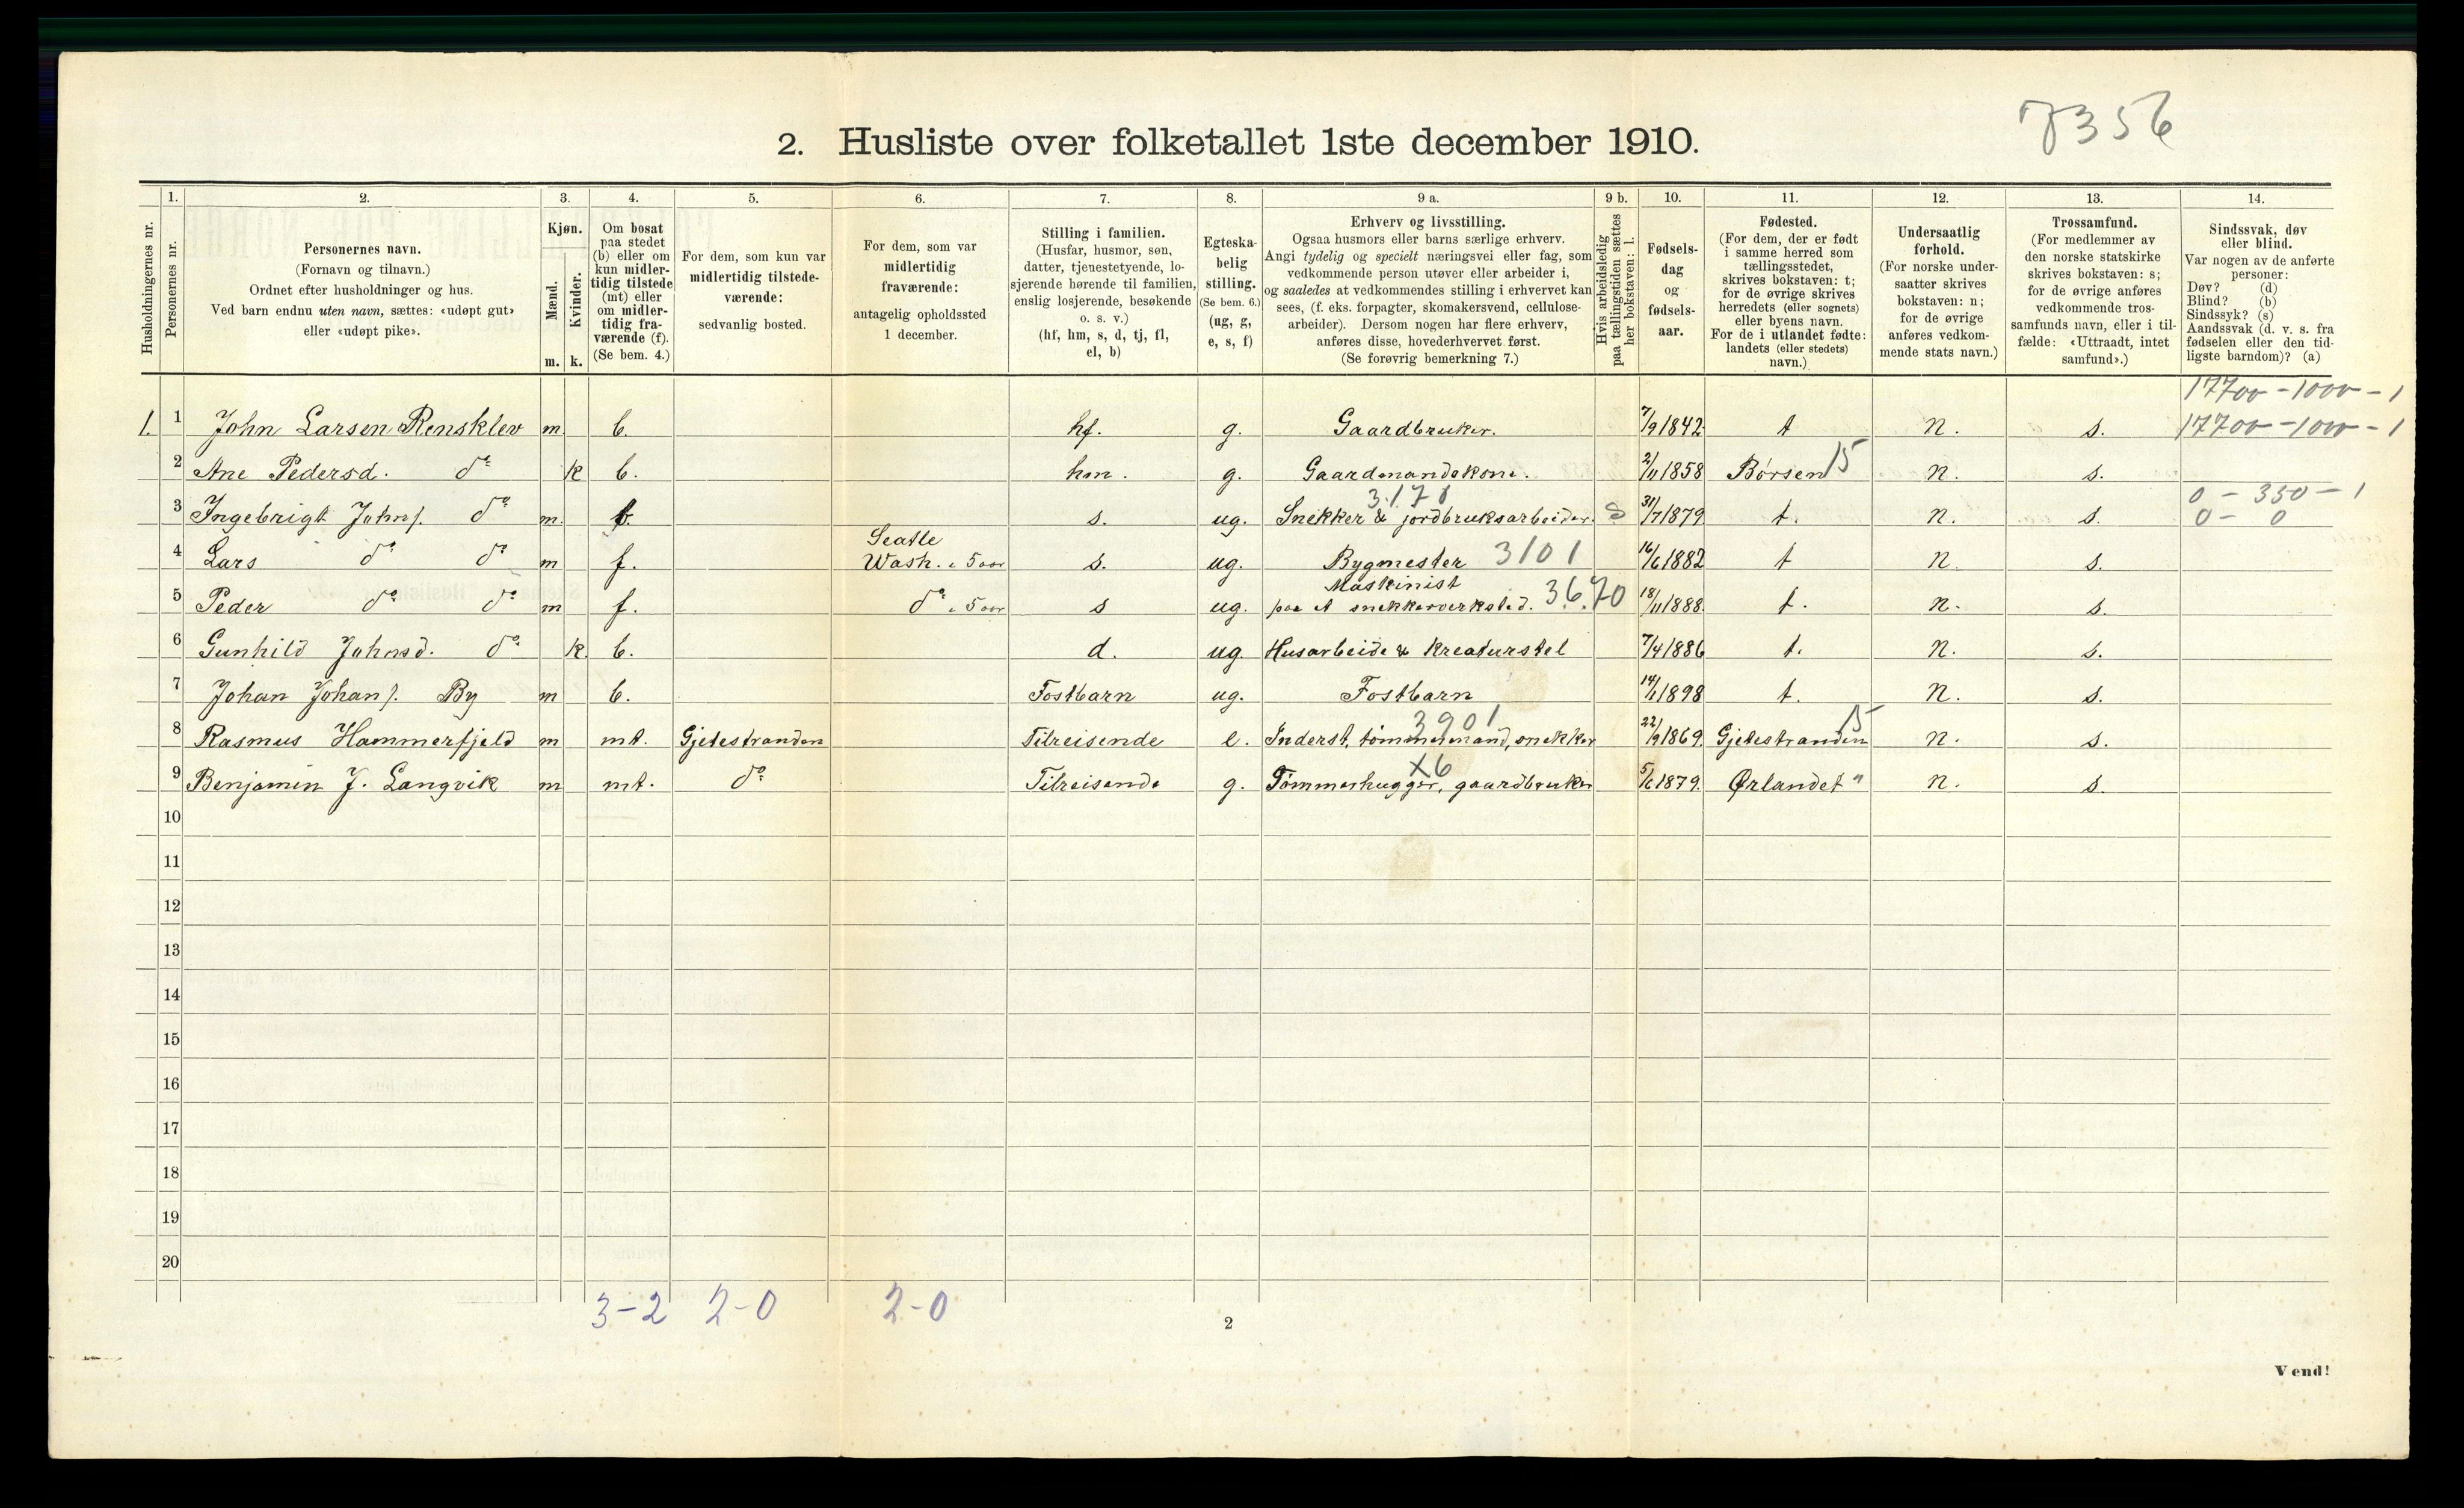 7356
2. Husliste over folketallet 1ste december 1910.
Husholdningernes nr.
1.
Personernes nr.
2.
Personernes navn.
(Fornavn og tilnavn.)
Ordnet efter husholdninger og hus.
Ved barn endnu uten navn, sættes: «udøpt gut»
eller «udøpt pike».
3.
Kjøn.
Mænd.
Kvinder.
m. k.
4.
Om bosat
paa stedet
(b) eller om
kun midler-
tidig tilstede
(mt) eller
om midler-
tidig fra-
værende (f).
(Se bem. 4.)
5.
For dem, som kun var
midlertidig tilstede-
værende:
sedvanlig bosted.
6.
For dem, som var
midlertidig
fraværende:
antagelig opholdssted
1 december.
7.
Stilling i familien.
(Husfar, husmor, søn,
datter, tjenestetyende, lo-
sjerende hørende til familien,
enslig losjerende, besøkende
o. s. v.)
(hf, hm, s, d, tj, fl,
el, b)
8.
Egteska-
belig
stilling.
(Se bem. 6.)
(ug, g,
e, s, f)
9 a.
Erhverv og livsstilling.
Ogsaa husmors eller barns særlige erhverv.
Angi tydelig og specielt næringsvei eller fag, som
vedkommende person utøver eller arbeider i,
og saaledes at vedkommendes stilling i erhvervet kan
sees, (f. eks. forpagter, skomakersvend, cellulose-
arbeider). Dersom nogen har flere erhverv,
anføres disse, hovederhvervet først.
(Se forøvrig bemerkning 7.)
9 b.
Hvis arbeidsledig
paa tællingstiden sættes
her bokstaven: l.
10.
Fødsels-
dag
og
fødsels-
aar.
11.
Fødested.
(For dem, der er født
i samme herred som
tællingsstedet,
skrives bokstaven: t;
for de øvrige skrives
herredets (eller sognets)
eller byens navn.
For de i utlandet fødte:
landets (eller stedets)
navn.)
12.
Undersaatlig
forhold.
(For norske under-
saatter skrives
bokstaven: n;
for de øvrige
anføres vedkom-
mende stats navn.)
13.
Trossamfund.
(For medlemmer av
den norske statskirke
skrives bokstaven: s;
for de øvrige anføres
vedkommende tros-
samfunds navn, eller i til-
fælde: «Uttraadt, intet
samfund».)
14.
Sindssvak, døv
eller blind.
Var nogen av de anførte
personer:
Døv? (d)
Blind? (b)
Sindssyk? (s)
Aandssvak (d. v. s. fra
fødselen eller den tid-
ligste barndom)? (a)
17700-1000-1
1. 1 John Larsen Rensklev m b. hf. g. Gaardbruker. 7/9 1842 t n. s. 17700-1000-1
2 Ane Pedersd. do k b. hm. g. Gaardmandskone. 2/11 1858 Børsen 15 n. s.
3.171 0 - 350 - 1
3 Ingebrigt Johns. do m. b. s. ug. Snekker & jordbruksarbeider. S 31/7 1879 t. n. s. 0 - 0
Seatle
4 Lars do do m f. Wash. i 5 aar s. ug. Bygmester 3101 16/6 1882 t n. s.
Maskinist
5 Peder do do m f. do i 5 aar s ug. paa et snekkerverksted. 3.6.70 18/11 1888. t. n. s.
6 Gunhild Johnsd. do k b. d. ug. Husarbeide & Kreaturstel 7/4 1886 t. n. s.
7 Johan Johans. By m b. Fostbarn ug. Fostbarn 14/1 1898 t. n. s.
3901 15
8 Rasmus Hammerfjeld m mt. Gjetestranden Tilreisende e. Inderst, tømmermand, snekker 22/9 1869. Gjetestranden n. s.
X6
9 Benjamin J. Langvik m mt. do Tilreisende g. Tømmerhugger, gaardbruker 5/6 1879. Ørlandet " n. s.
10
11
12
13
14
15
16
17
18
19
20
3-2 2-0 2-0
2
Vend!